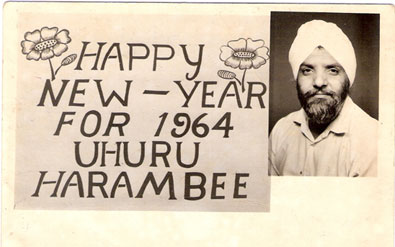 HAPPY
NEW-YEAR
FOR 1964
UHURU
HARAMBEE